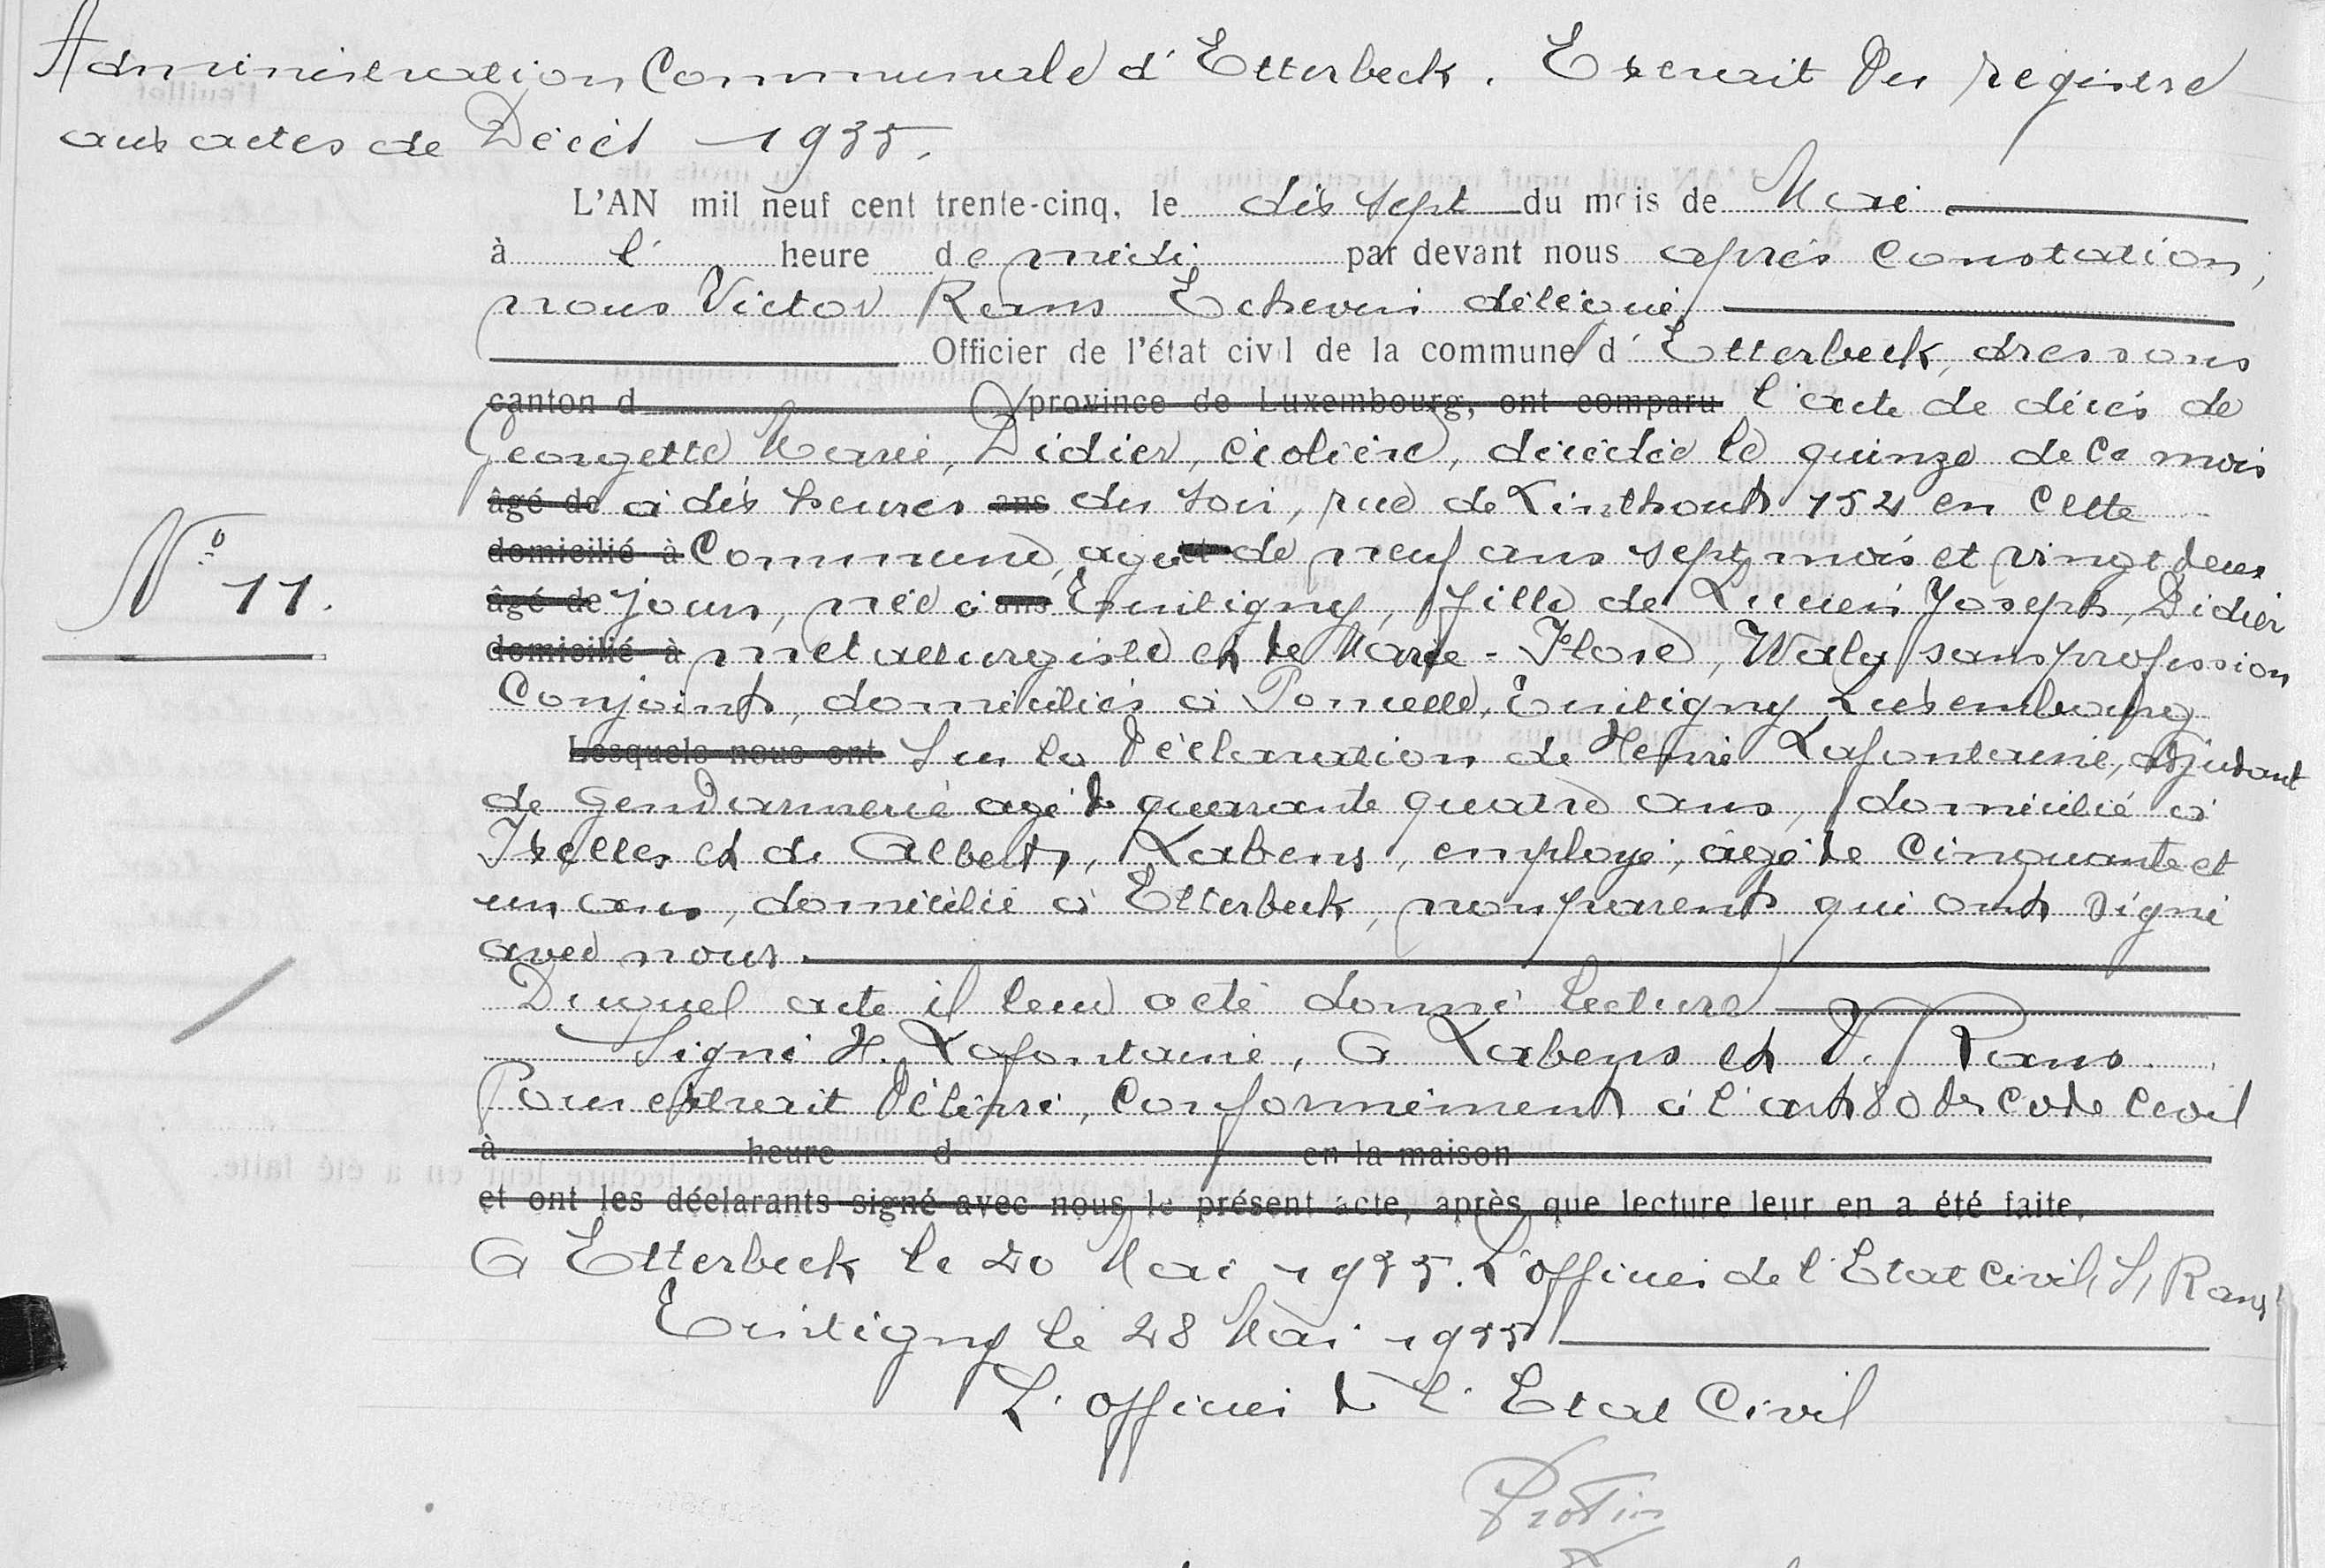 Administration Communale d'Etterbeck. Extrait du registre
aux actes de Décès 1935.
L'AN mil neuf cent trente-cinq, le dix sept du mois de Mai
à l' heure de midi par devant nous après constatation,
nous Victor Rans Echevin délégué
Officier de l'état civil de la commune d'Etterbeck, dressons
canton d province de Luxembourg, ont comparu l'acte de décès de
Georgette Marie, Didier, écolière, décédée le quinze de ce mois
âgé de à dix heures ans du soir, rue de Linthout 152 en cette
domicilié à Commune, agée de neuf ans sept mois et vingt deux
âgé de jours, née à ans Etalle
N° 11.
domicilié à métallurgiste et de Marie-Flore, Waly sans profession
Conjoints, domiciliés à Poncelle, Tintigny Luxembourg
Lesquels nous ont Sur la Déclaration de Henri Lafontaine, adjudant
de gendarmerie agé de quarante quatre ans, domicilié à
Ixelles et de Albert, Labens, employé, âgé de cinquante et
un ans, domicilié à Etterbeek, non parents qui ont signé
avec nous.
Duquel acte il leur a été donné lecture
Signé H. Lafontaine, A Labens et V. Rans
Pour extrait délivré, Conformément à l'art 80 du Code Civil
à heure d en la maison
et ont les déclarants signé avec nous le présent acte, après que lecture leur en a été faite.
A Etterbeck le 20 Mai 1935. L'officier de l'Etat Civil, S, Rans
Tintigny le 28 Mai 1935
L'officier de l'Etat Civil
Protin